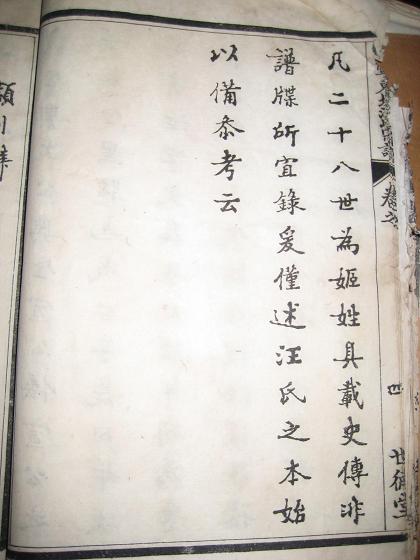 凡二十八世為姬姓具載史傳非
譜牒所宜錄爰僅述汪氏之本始
以備叅考云
卷之
四
世德堂